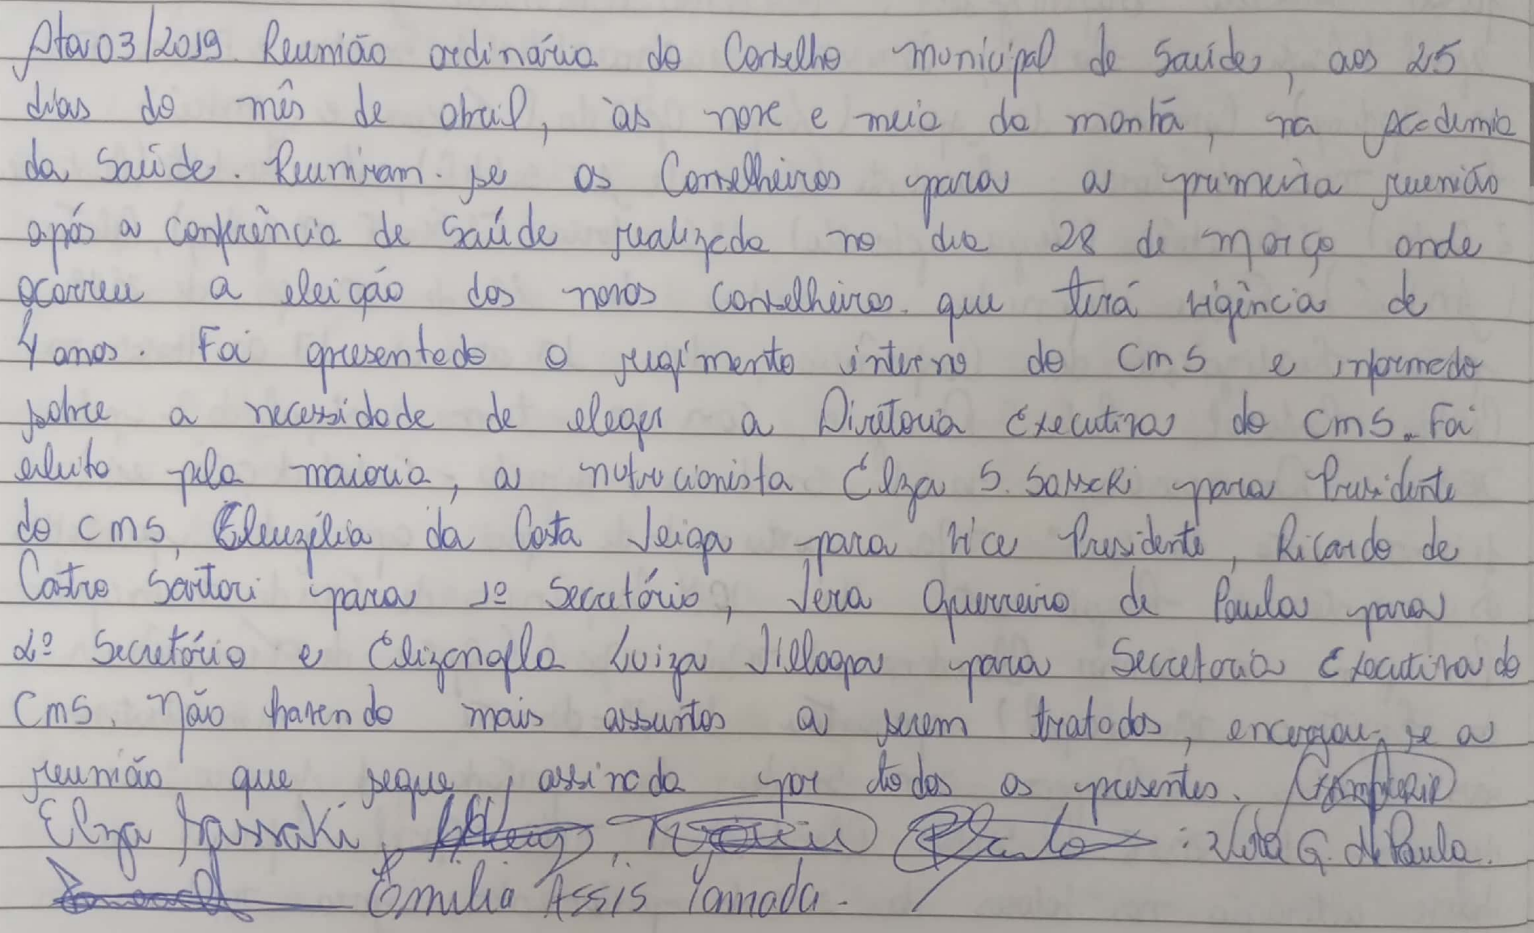 Ata 03/2019. Reunião ordinária do Conselho municipal de Saúde, aos 25
dias do mês de abril, às nove e meia da manhã, na Academia
da Saúde. Reuniram-se os Conselheiros para a primeira reunião
após a conferência de Saúde realizada no dia 28 de março onde
ocorreu a eleição dos novos conselheiros que terá vigência de
4 anos. Foi apresentado o regimento interno do CMS e informado
sobre a necessidade de eleger a Diretoria Executiva do CMS. Foi
eleito pela maioria, a nutricionista Elza S. Sassaki para Presidente
do CMS, Eleuzélia da Costa Veiga para Vice Presidente, Ricardo de
Castro Sartori para 1º Secretário, Vera Guerreiro de Paula para
2º Secretário e Elizangela Luiza para Secretaria Executiva do
CMS. Não havendo mais assuntos a serem tratados, encerrou-se a
reunião que segue, assinada por todos os presentes.
Elza Sassaki Vera G. de Paula.
Emilia Assis